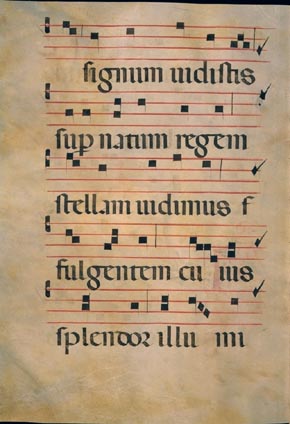 signum uidistis
sup natum regem
stellam uidimus f
fulgentem cu ius
splendor illu mi